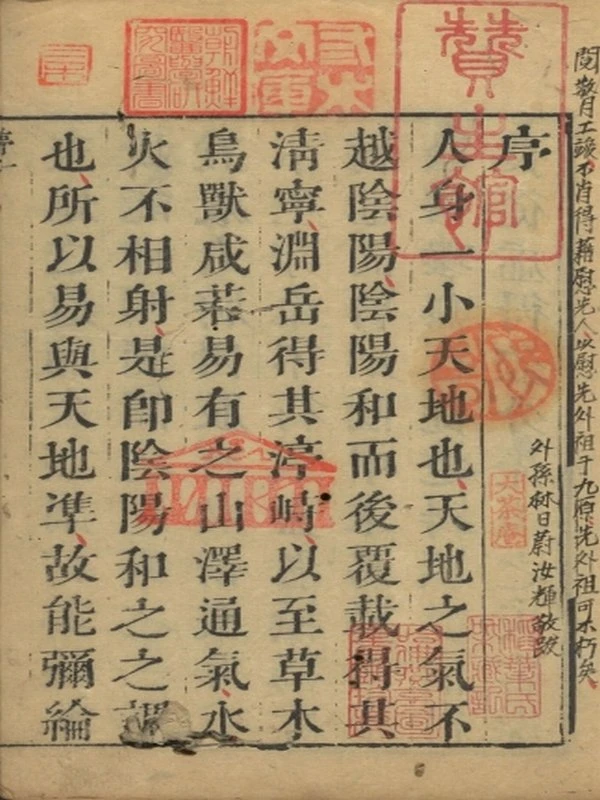 閱數月工竣不肖得藉慰先人以慰先外祖于九原先外祖可不朽矣
外孫林日蔚汝輝敬跋
序
人身一小天地也天地之氣不
越陰陽陰陽和而後覆載得其
清寧淵岳得其渟峙以至草木
鳥獸咸若易有之山澤通氣水
火不相射是卽陰陽和之之謂
也所以易與天地準故能彌綸
贊生館
大茶庵